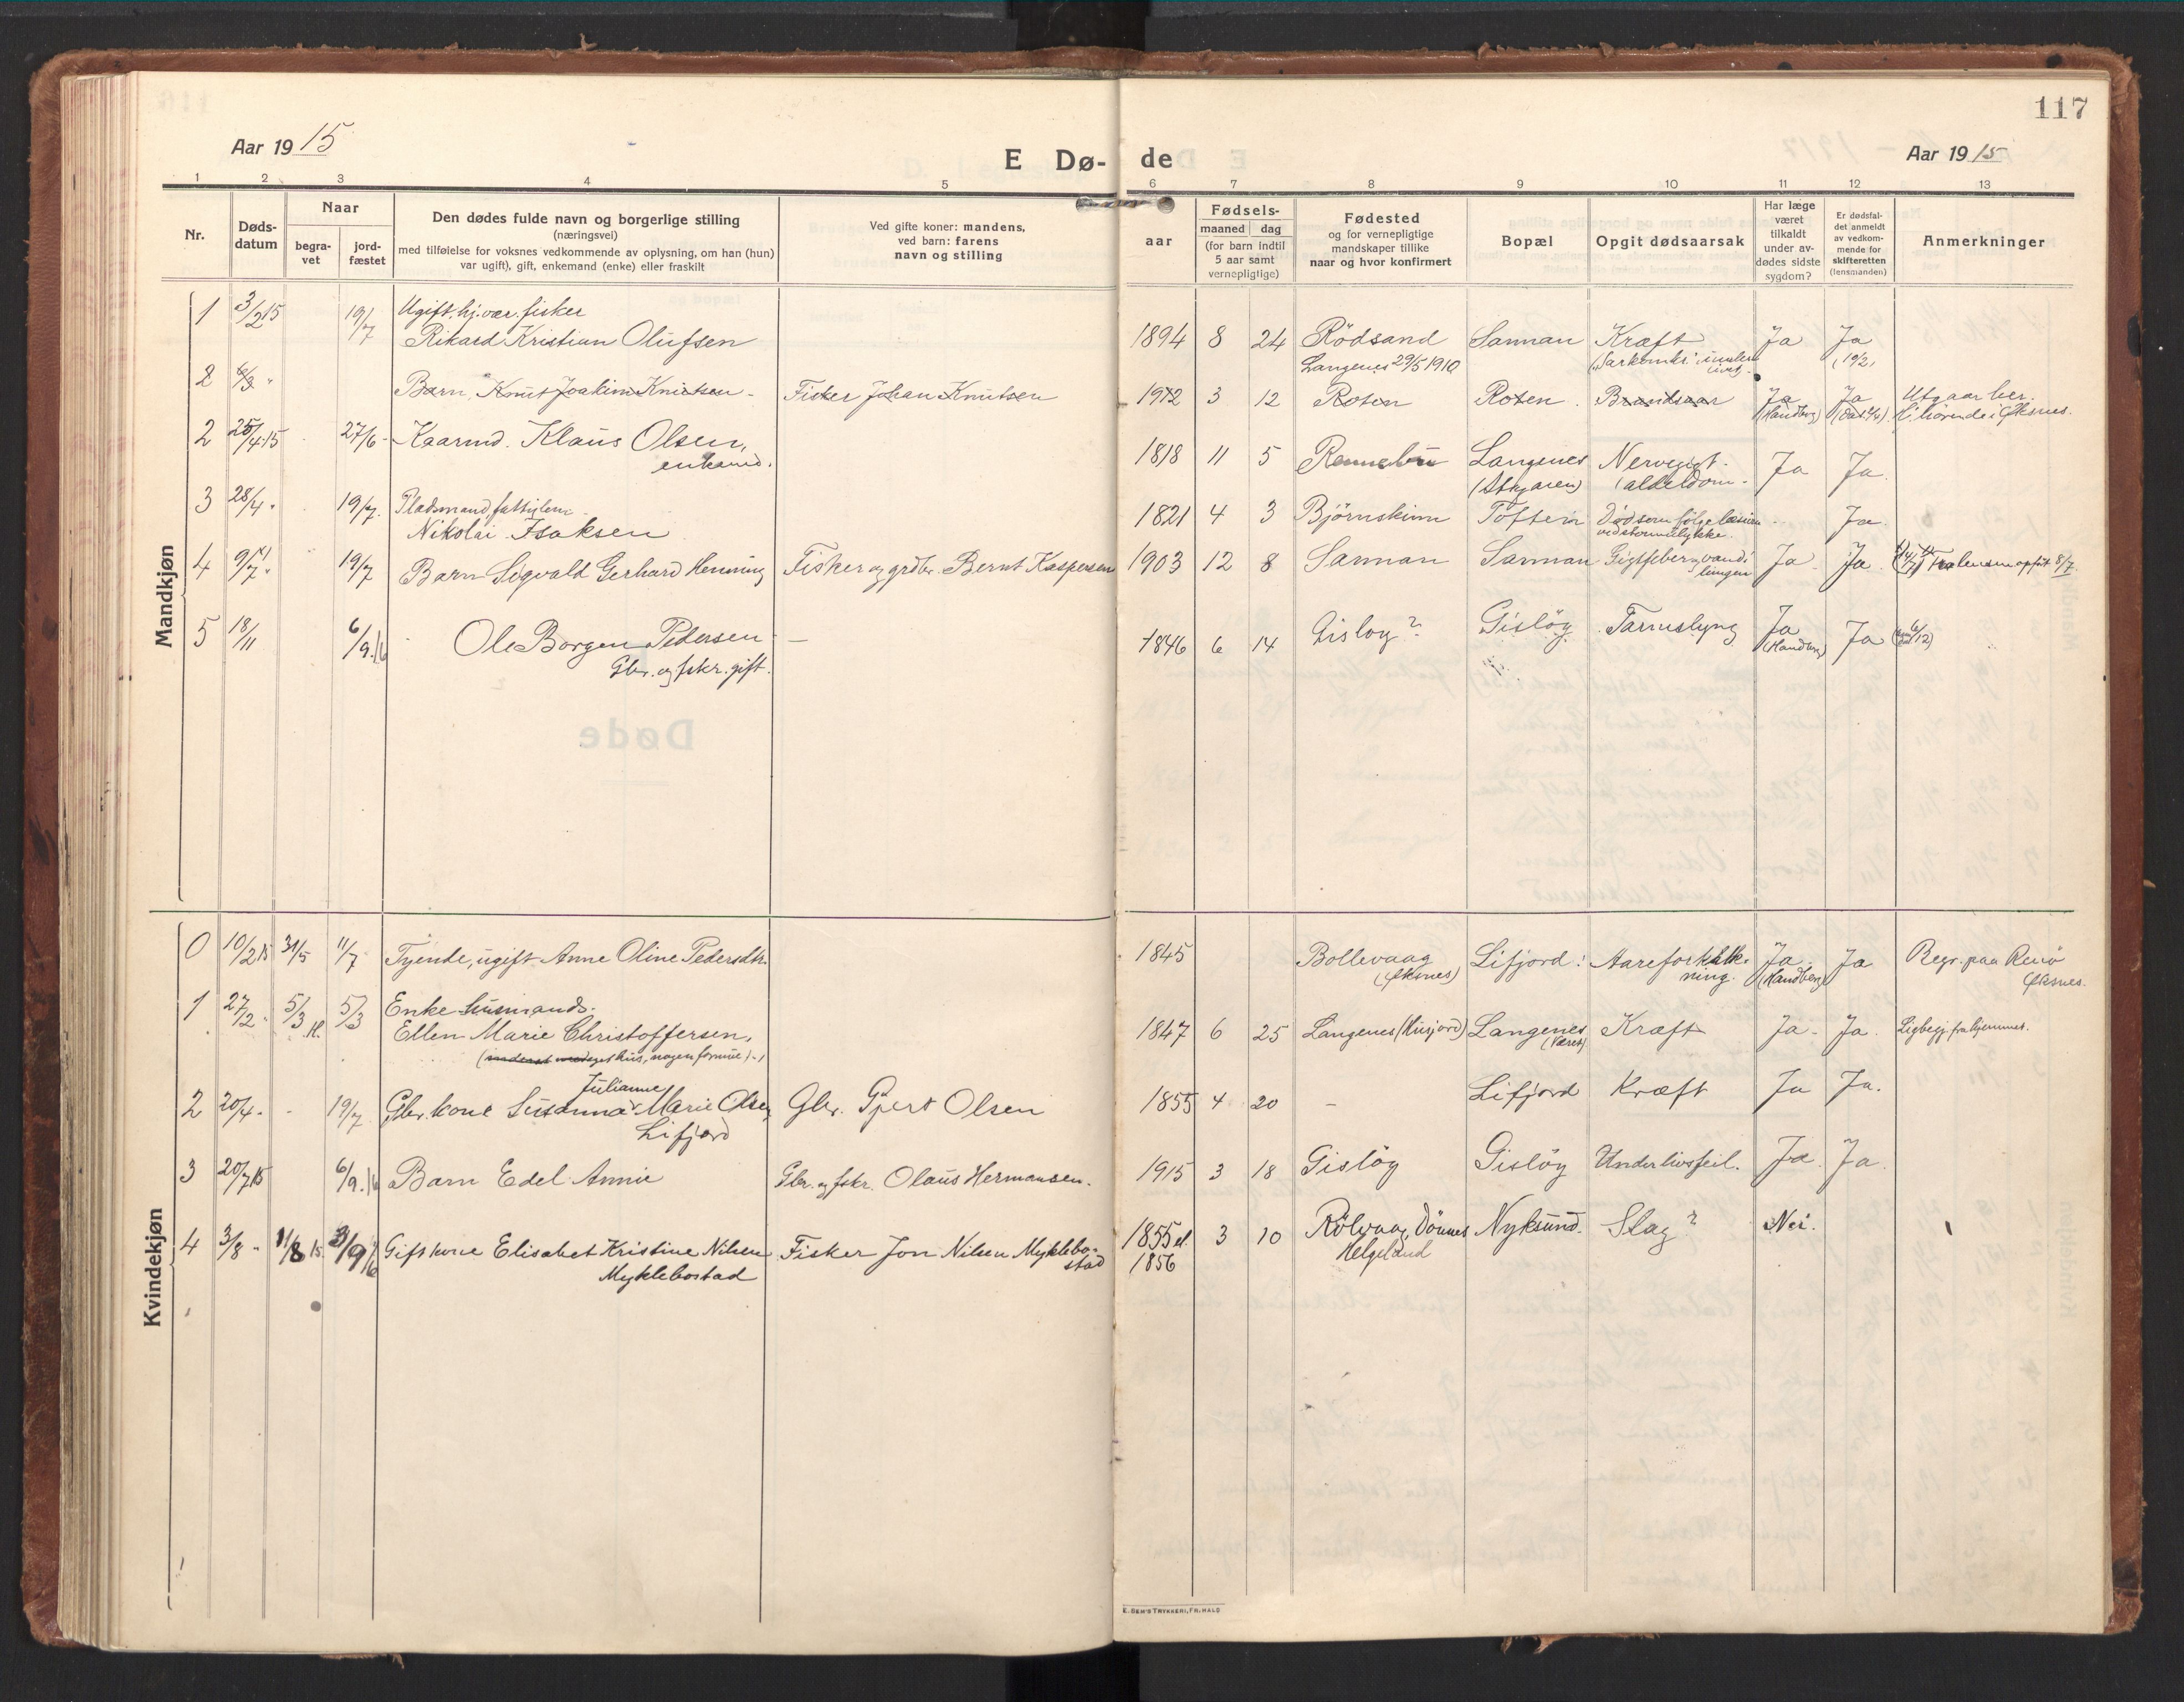 117
Aar 1915
E Dø- de
Aar 1915
1 2 3 4 5 6 7 8 9 10 11 12 13
Nr.
Døds-
datum
Naar
begra-
vet
jord-
fæstet
Den dødes fulde navn og borgerlige stilling
(næringsvei)
med tilføielse for voksnes vedkommende av oplysning, om han (hun)
var ugift), gift, enkemand (enke) eller fraskilt
Ved gifte koner: mandens,
ved barn: farens
navn og stilling
aar
Fødsels-
maaned dag
(for barn indtil
5 aar samt
vernepligtige)
Fødested
og for vernepligtige
mandskaper tillike
naar og hvor konfirmert
Bopæl
Opgit dødsaarsak
Har læge
været
tilkaldt
under av-
dødes sidste
sygdom?
Er dødsfal-
det anmeldt
av vedkom-
mende for
skifteretten
(lensmanden)
Anmerkninger
Mandkjøn
1 3/2 15 19/7 Ugift, hj.vær. fisker
Rikard Kristian Olufsen 1894 8 24 Rödsand Sannan Kræft Ja Ja
Langenes 29/5 1910 (10/2)
2 6/3 " Barn, Knut Joakim Knutsen - Fisker Johan Knutsen 1912 3 12 Roten Roten Brandsaar Ja Ja Utgaar ber.
(Handberg) hørende i Øksnes.
2 25/4 15 27/6 - Kaarmd. Klaus Olsen, 1818 11 5 Langenes Nervegigt - Ja Ja.
enkemd. alderdom -
3 28/4 " 19/7. Pladsmand, fattiglem 1821 4 3 Björnskinn Toften Död som følge læsion Ja.
Nikolai Isaksen ved stormulykke.
4 9/7 " 19/7 Barn Sigvald Gerhard Henning Fisker og grdbr. Bernt Kaspersen 1903 12 8 Sannan Sannan Gigtfeber, vand i Ja Ja.
lungen
5 18/11 6/9.16 Ole Borgen Pedersen - 1846 6 14 Gislöy? Gislöy Tarmslyng Ja Ja (6/12)
Gbr. og fskr. gift. (Handberg)
Døde
Kvindekjøn
0 10/2 15 31/5 11/7 Tyende, ugift Anne Oline Pedersdtr. 1845 Bollevaag Lifjord! Aareforkalk- Ja Ja Begr. paa Renö
(Øksnes) ning. (Handberg) Øksnes.
1 27/2 " 5/3 5/3 Enke husmands.
Ellen Marie Christoffersen, 1847 6 25 Langenes (Husjord) Langenes Kræft Ja - Ja. Ligbegj. fra hjemmet.
(inderst med eget hus, nogen formue) - (Været)
Julianne
2 20/4 - - 19/7 Gbr. kone Susanna Marie Olsen, Gbr. Gjert Olsen 1855 4 20 - Lifjord Kræft Ja Ja.
Lifjord
3 20/7 15 6/9.16 Barn Edel Annie Gbr. og fskr. Olaus Hermansen. 1915 3 18 Gislöy Gislöy Underlivsfeil. Ja. Ja.
4 3/8 " 11/8 15 3/9 16 Gift kone Elisabet Kristine Nilsen Fisker Jon Nilsen Myklebo- 1855 el. 3 10 Rölvaag, Dönnes Nyksund. Slag? Nei.
Myklebostad stad 1856 Helgeland
E. SEM'S TRYKKERI, FR: HALD